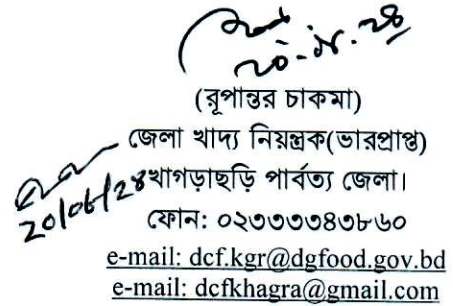 (রূপান্তর চাকমা)
জেলা খাদ্য নিয়ন্ত্রক(ভারপ্রাপ্ত)
খাগড়াছড়ি পার্বত্য জেলা।
ফোন: ০২৩৩৩৩৪৩৮৬০
e-mail: dcf.kgr@dgfood.gov.bd
e-mail: dcfkhagra@gmail.com